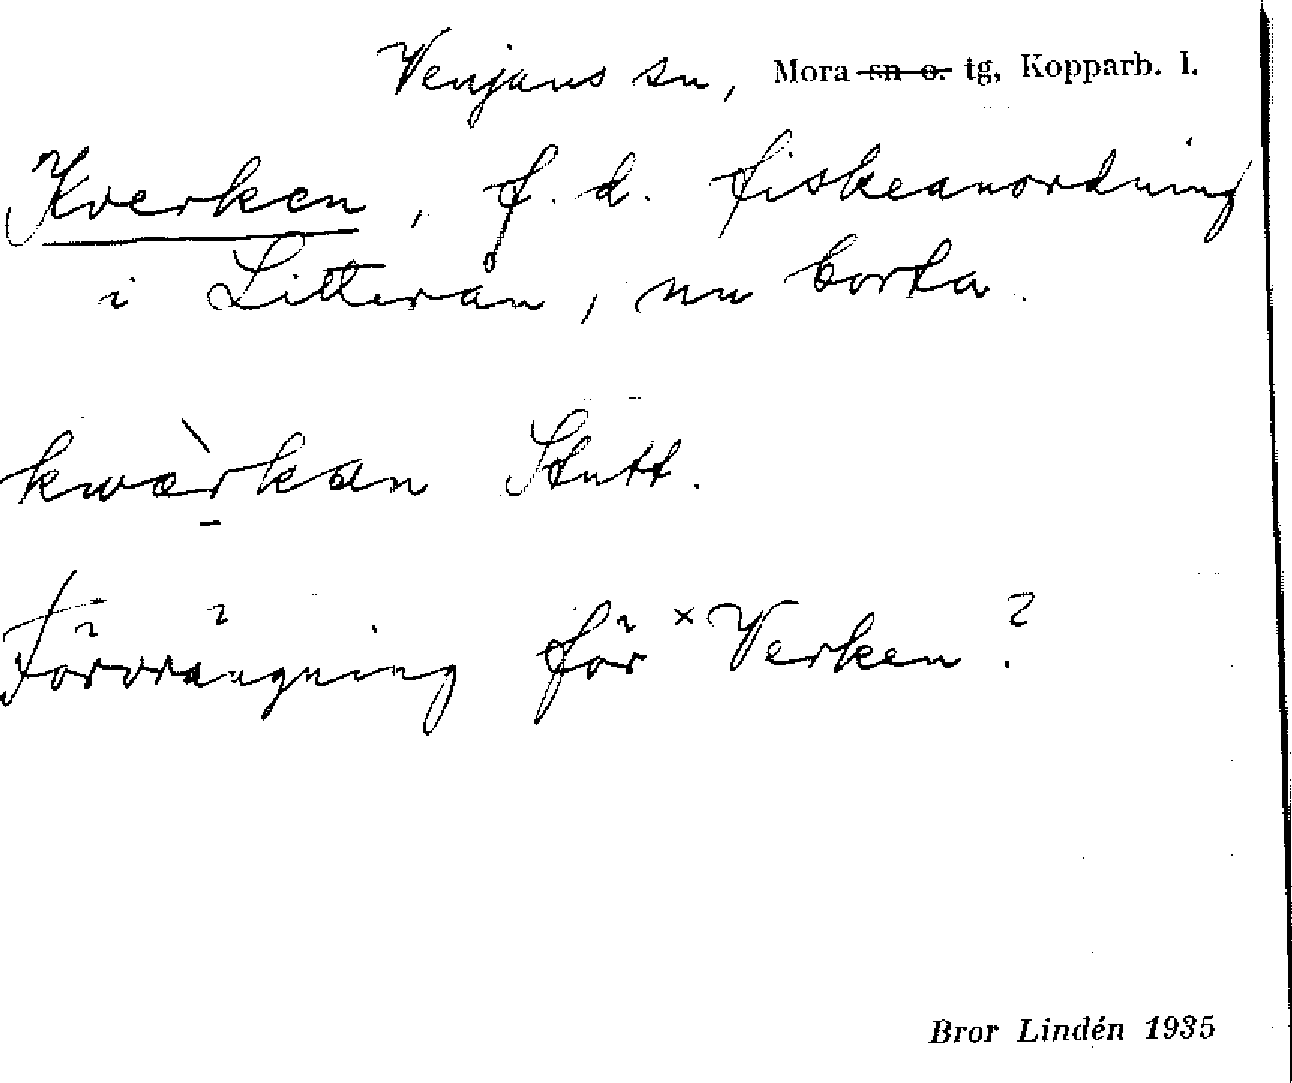 Venjans sn, Mora ~~sn o.~~ tg, Kopparb. l.
Kverken, f. d. fiskeanordning
i Litterån, nu borta.
kwàrkan Stutt.
Förvrängning för ×Verken?
Bror Lindén 1935